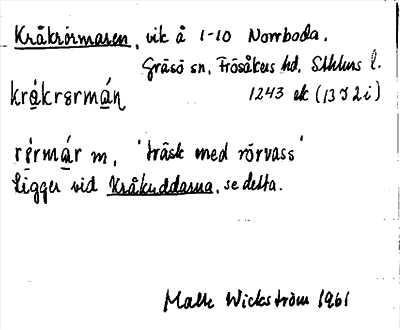 Kråkrörmaren, vik å 1-10 Norrboda.
Gräsö sn, Frösåkers hd, Sthlms l.
kråkrørmán 1243 ek (13 I 2 i)
rø̀rmár m, 'träsk med rörvass'
Ligger vid Kråkuddarna, se detta.
Malte Wickström 1961